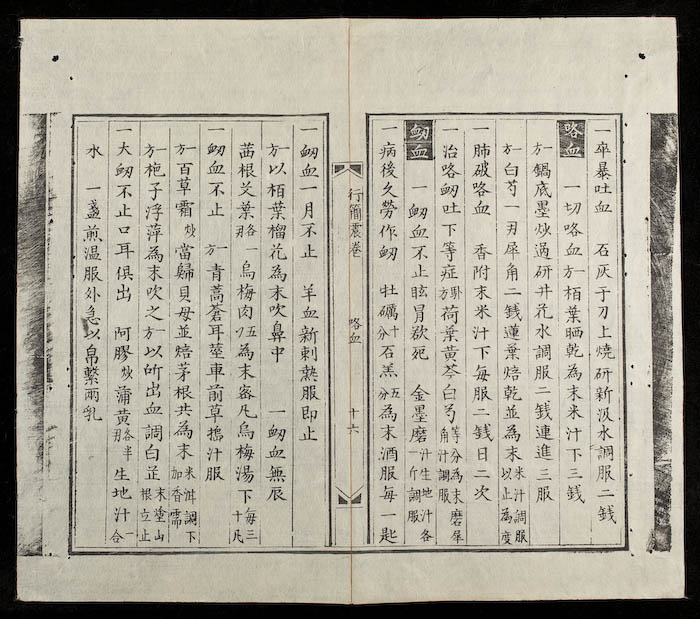 一卒暴吐血 石灰于刀上燒研新汲水調服二錢
咯血
一切咯血 方一栢葉晒乾為末米汁下三錢
方一鍋底墨炒過研井花水調服二錢連進三服
方一白芍一刄犀角二錢蓮葉焙乾並為末米汁調服以止為度
一肺破咯血 香附末米汁下每服二錢日二次
一治咯衂吐下等症 荷葉黄芩白芍等分為末磨犀角汁調服
衂血
一衂血不止眩冒欲死 金墨磨汁生地汁各一斤調服
一病後久勞作衂 牡礪十分石羔五分為末酒服每一匙
行簡震卷 咯血 十六
一衂血一月不止 羊血新刺熱服即止
方一以栢葉榴花為末吹鼻中 一衂血無辰
茜根艾葉各一刄烏梅肉五刀為末密凡烏梅湯下每三十凡
一衂血不止 方一青蒿蒼耳莖車前草搗汁服
方一百草霜炒當歸貝母並焙茅根共為末米泔調下加香需
方一梔子浮萍為末吹之 方一以所出血調白芷末塗山根立止
一大衂不止口耳俱出 阿膠炒蒲黄各半刄生地汁一合
水一盞煎温服外急以帛繫兩乳